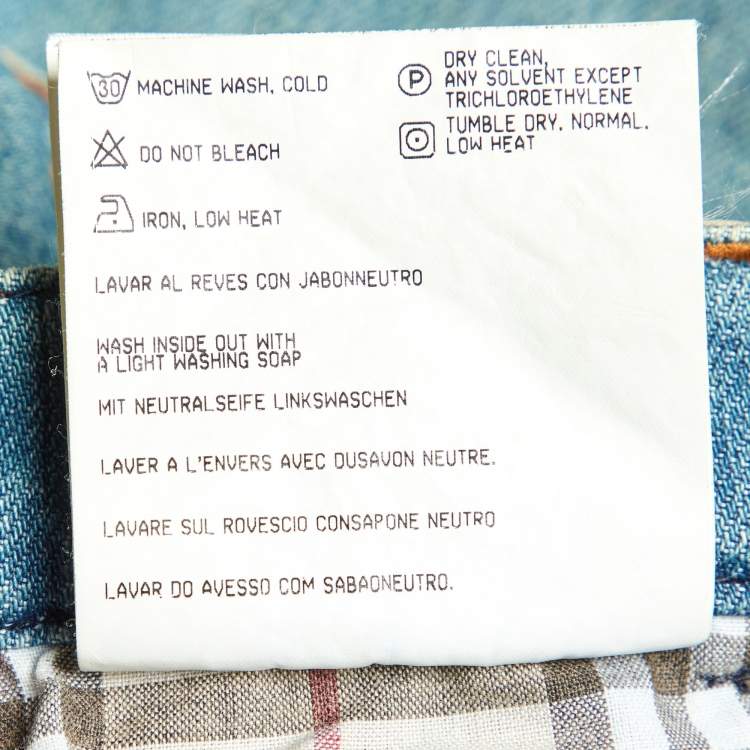 30 MACHINE WASH, COLD
DO NOT BLEACH
IRON, LOW HEAT
P DRY CLEAN,
ANY SOLVENT EXCEPT
TRICHLOROETHYLENE
TUMBLE DRY. NORMAL.
LOW HEAT
LAVAR AL REVES CON JABONNEUTRO
WASH INSIDE OUT WITH
A LIGHT WASHING SOAP
MIT NEUTRALSEIFE LINKSWASCHEN
LAVER A L'ENVERS AVEC DUSAVON NEUTRE.
LAVARE SUL ROVESCIO CONSAPONE NEUTRO
LAVAR DO AVESSO COM SABAONEUTRO.